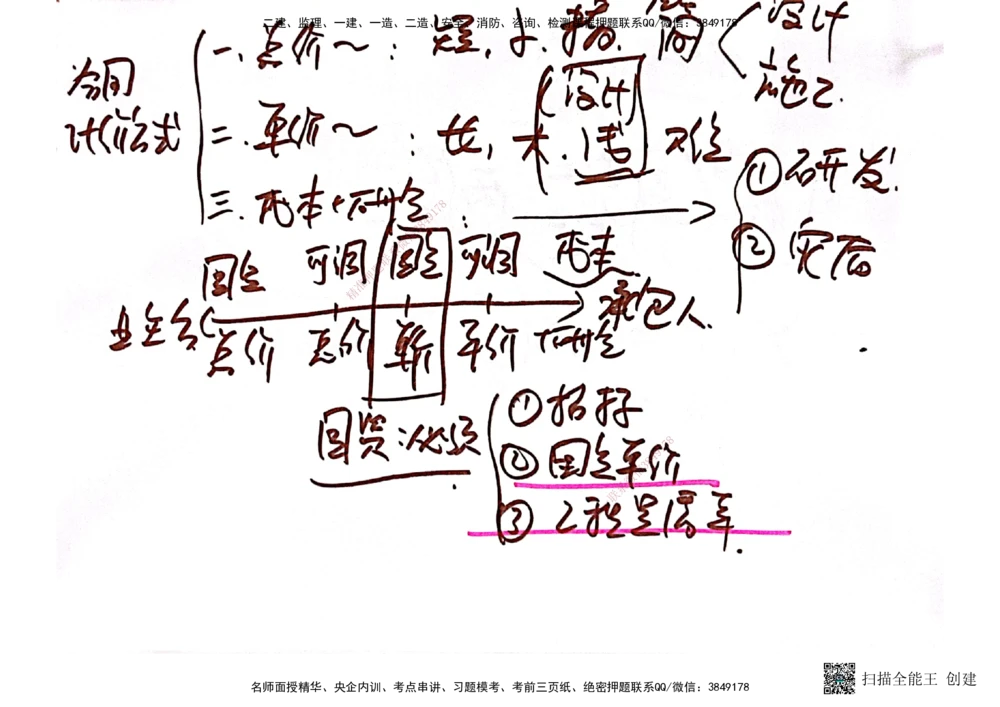 二建、监理、一建、一造、二造、安全、消防、咨询、检测 押题联系QQ/微信：3849178
合同
计价公式
一.总价～：短，小，精，简
设计
施工.
二.单价～：长，大.(设计)浅 难
三.成本+酬金：
①研发.
②灾后
固定 可调 固定 可调 成本
业主台
承包人.
总价 总价 单价 单价 酬金
国资：必须
①招标
②固定单价
③工程量清单.
名师面授精华、央企内训、考点串讲、习题模考、考前三页纸、绝密押题联系QQ/微信：3849178
扫描全能王 创建